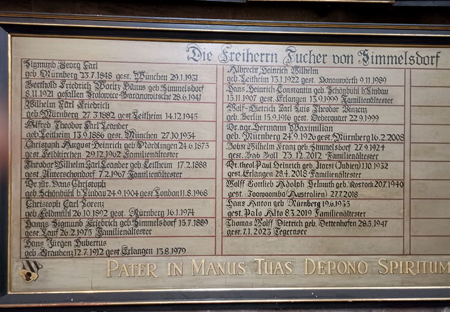 Die Freiherrn Tucher von Simmelsdorf
Sigmund Georg Carl
geb. Nürnberg 23.7.1848 gest. München 29.1.1931
Berthold Friedrich Moritz Hanns geb. Simmelsdorf
8.11.1921 gefallen 28.6.1941
Wilhelm Karl Friedrich
geb. Nürnberg 27.3.1882 gest. Leitheim 14.12.1945
Alfred Theodor Carl
geb. Leitheim 13.9.1886 gest. München 27.10.1954
Christoph August Heinrich geb. Nördlingen 24.6.1873
gest. Feldkirchen 29.12.1962 Familienältester
Theodor Wilhelm Carl geb. Leitheim 17.2.1888
gest. 7.2.1967 Familienältester
Dr. jur. Hans Christoph
geb. Schönbühl b/Lindau 24.9.1904 gest. London 11.8.1968
Christoph Carl Lorenz
geb. Feldmühl 26.10.1892 gest. Nürnberg 16.1.1974
Hanns Sigmund Friedrich geb. Simmelsdorf 13.7.1889
gest. Lauf 26.2.1975 Familienältester
Hans Jürgen Hubertus
12.7.1912 gest. Erlangen 13.8.1979
Albrecht Heinrich Wilhelm
geb. Leitheim 13.1.1922 gest. Donauwörth 9.11.1989
Hans Heinrich Constantin geb. Schönbühl b/Lindau
15.11.1907 gest. Erlangen 13.9.1999 Familienältester
Wolf Karl Theodor Vinzenz
geb. Berlin 13.9.1916 gest. 22.9.1999
Dr. agr. Hermann Maximilian
geb. Nürnberg 24.9.1926 gest. Nürnberg 16.2.2008
John Wilhelm Franz geb. Simmelsdorf 27.9.1924
gest. Bad Boll 23.12.2012 Familienältester
Hanns Paul Heinrich geb. 1.10.1932
gest. Erlangen 28.4.2018 Familienältester
Wolff Gottlieb Adolph Helmuth geb. Rostock 20.7.1940
gest. Toowoomba/Australien 27.7.2018
Hans Anton geb. Nürnberg 19.6.1933
gest. Palo Alto 8.3.2019 Familienältester
Thomas Wolf Dietrich geb. 28.3.1947
gest. 7.1.2023 Tegernsee
PATER IN MANUS TUAS DEPONO SPIRITUM